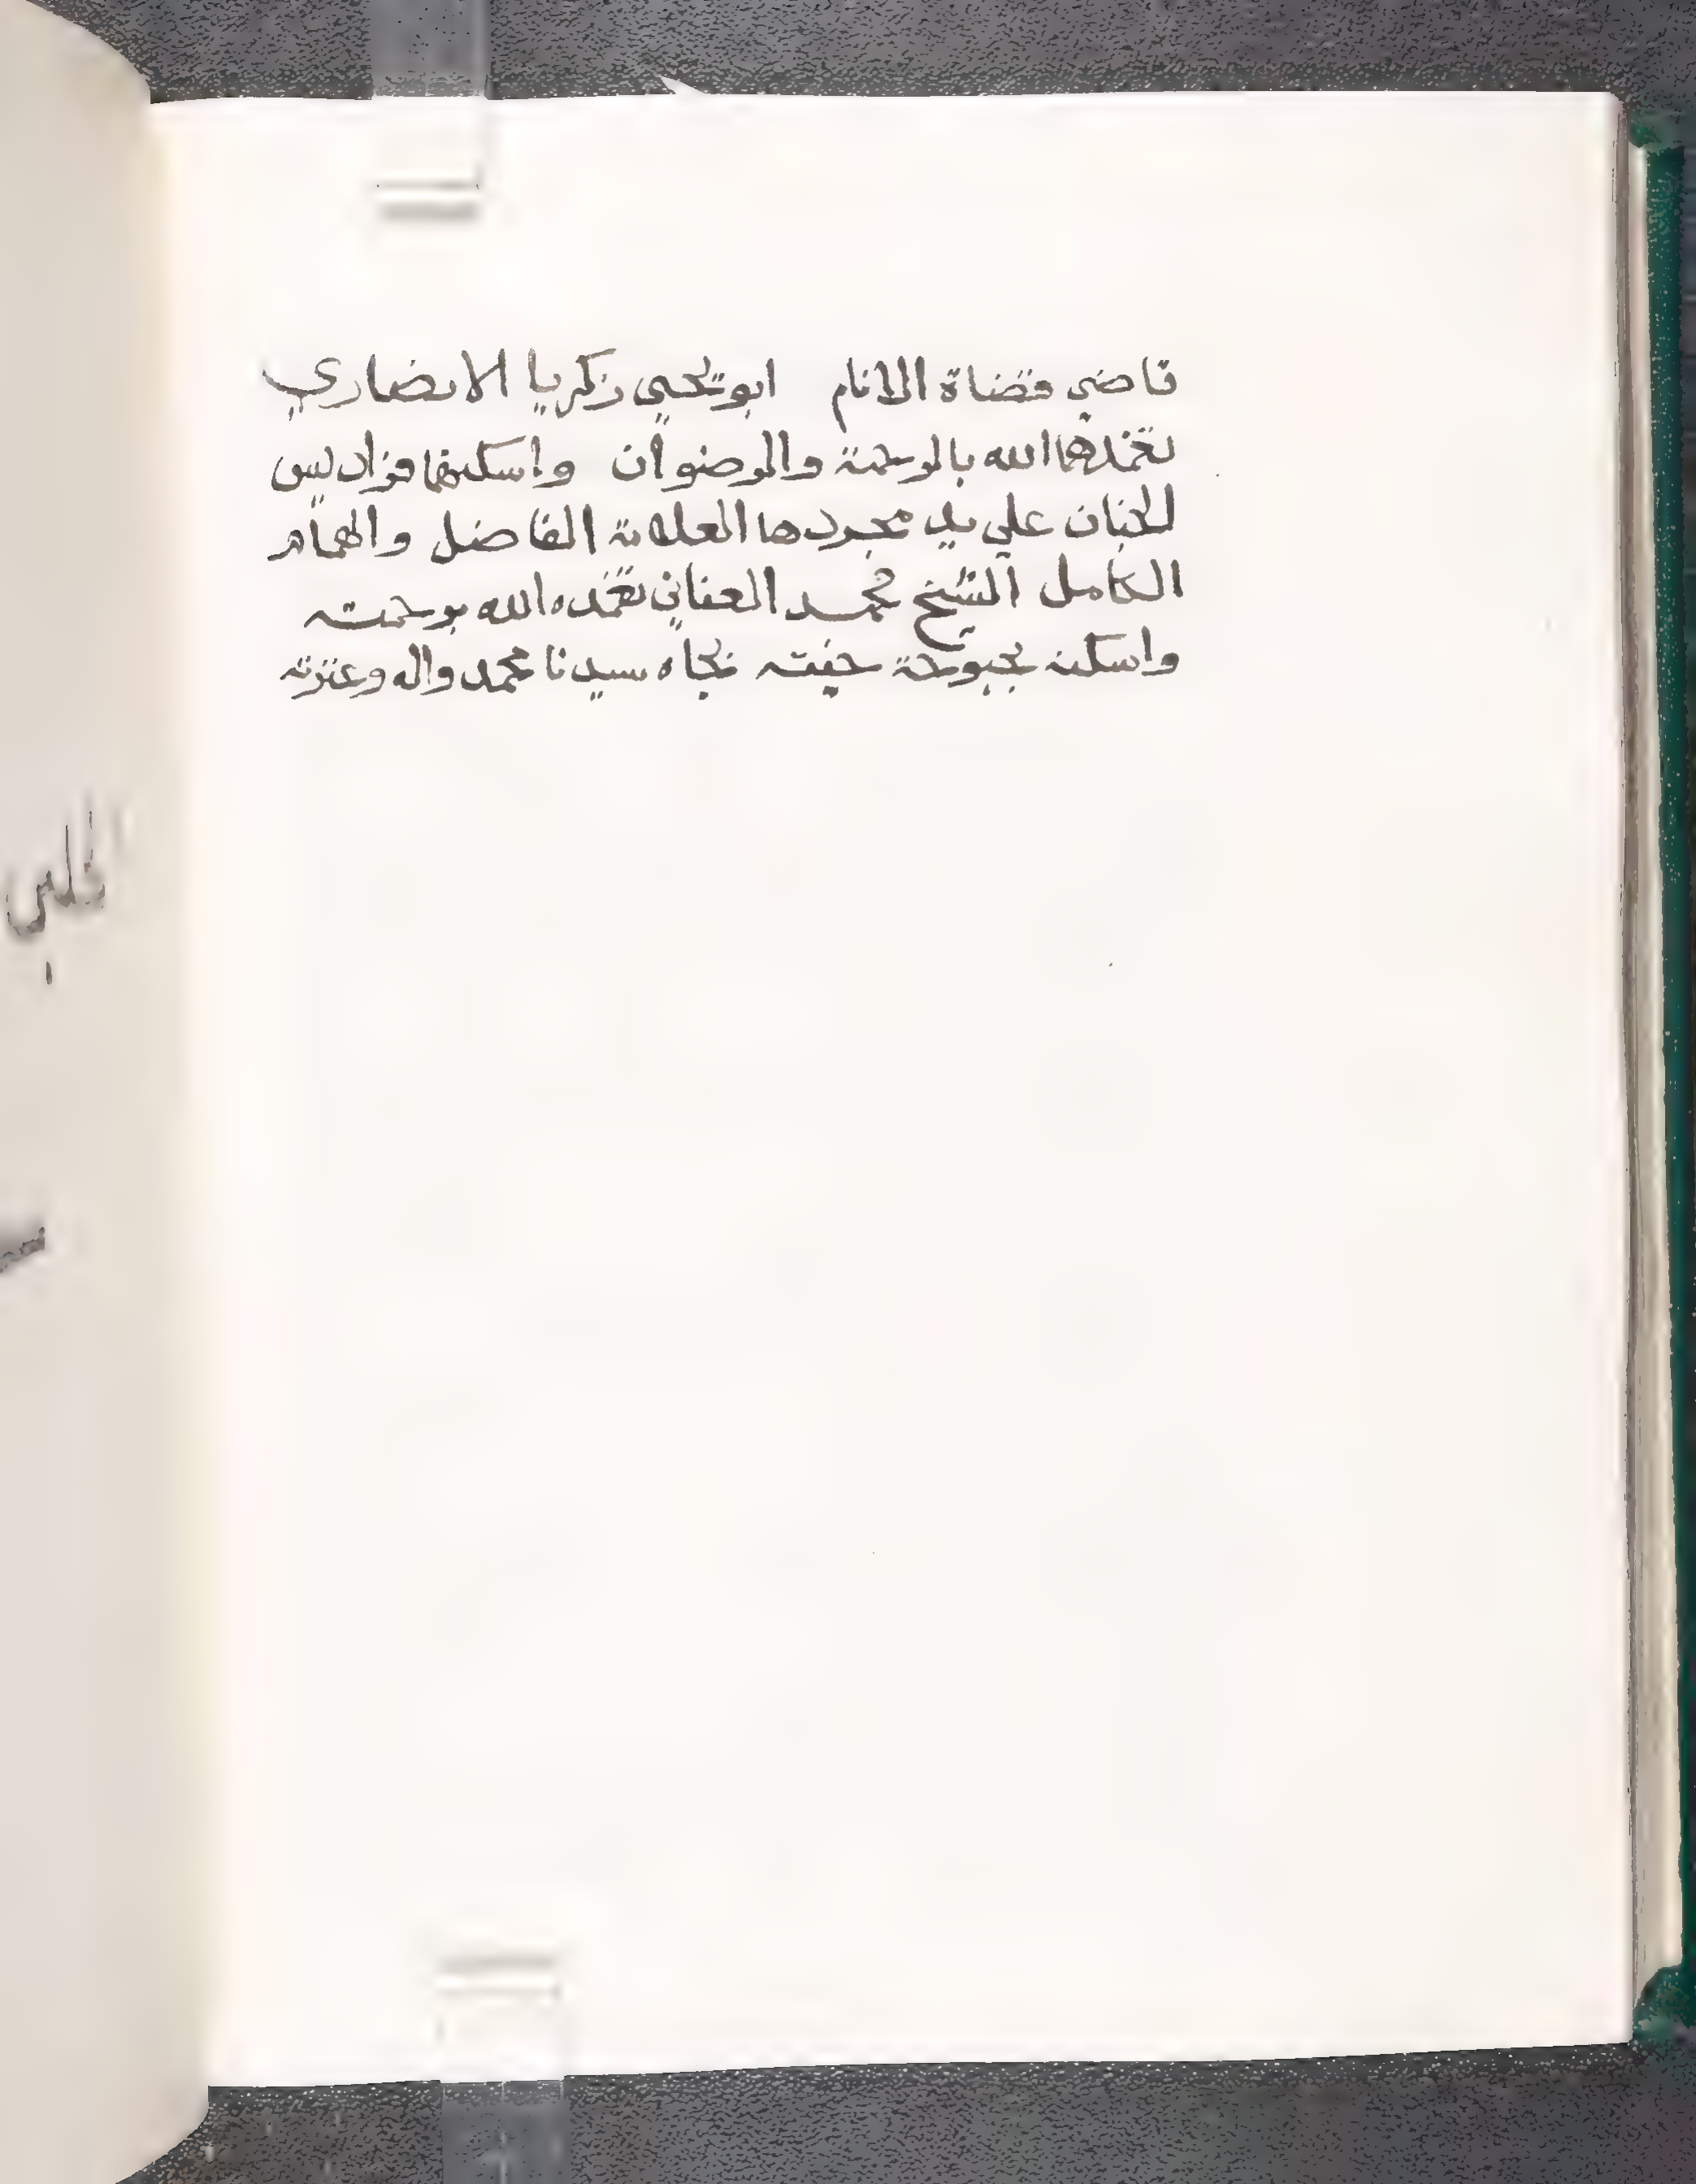 قاضي قضاة الانام ابو يحيي زكريا الانصاري
تغمدهما الله بالرحمة والرضوان واسكنهما فراديس
الجنان علي يد مجردها العلامة الفاضل والهمام
الكامل الشيخ محمد العناني تغمده الله برحمته
واسكنه بحبوحة جنته بجاه سيدنا محمد واله وعترته